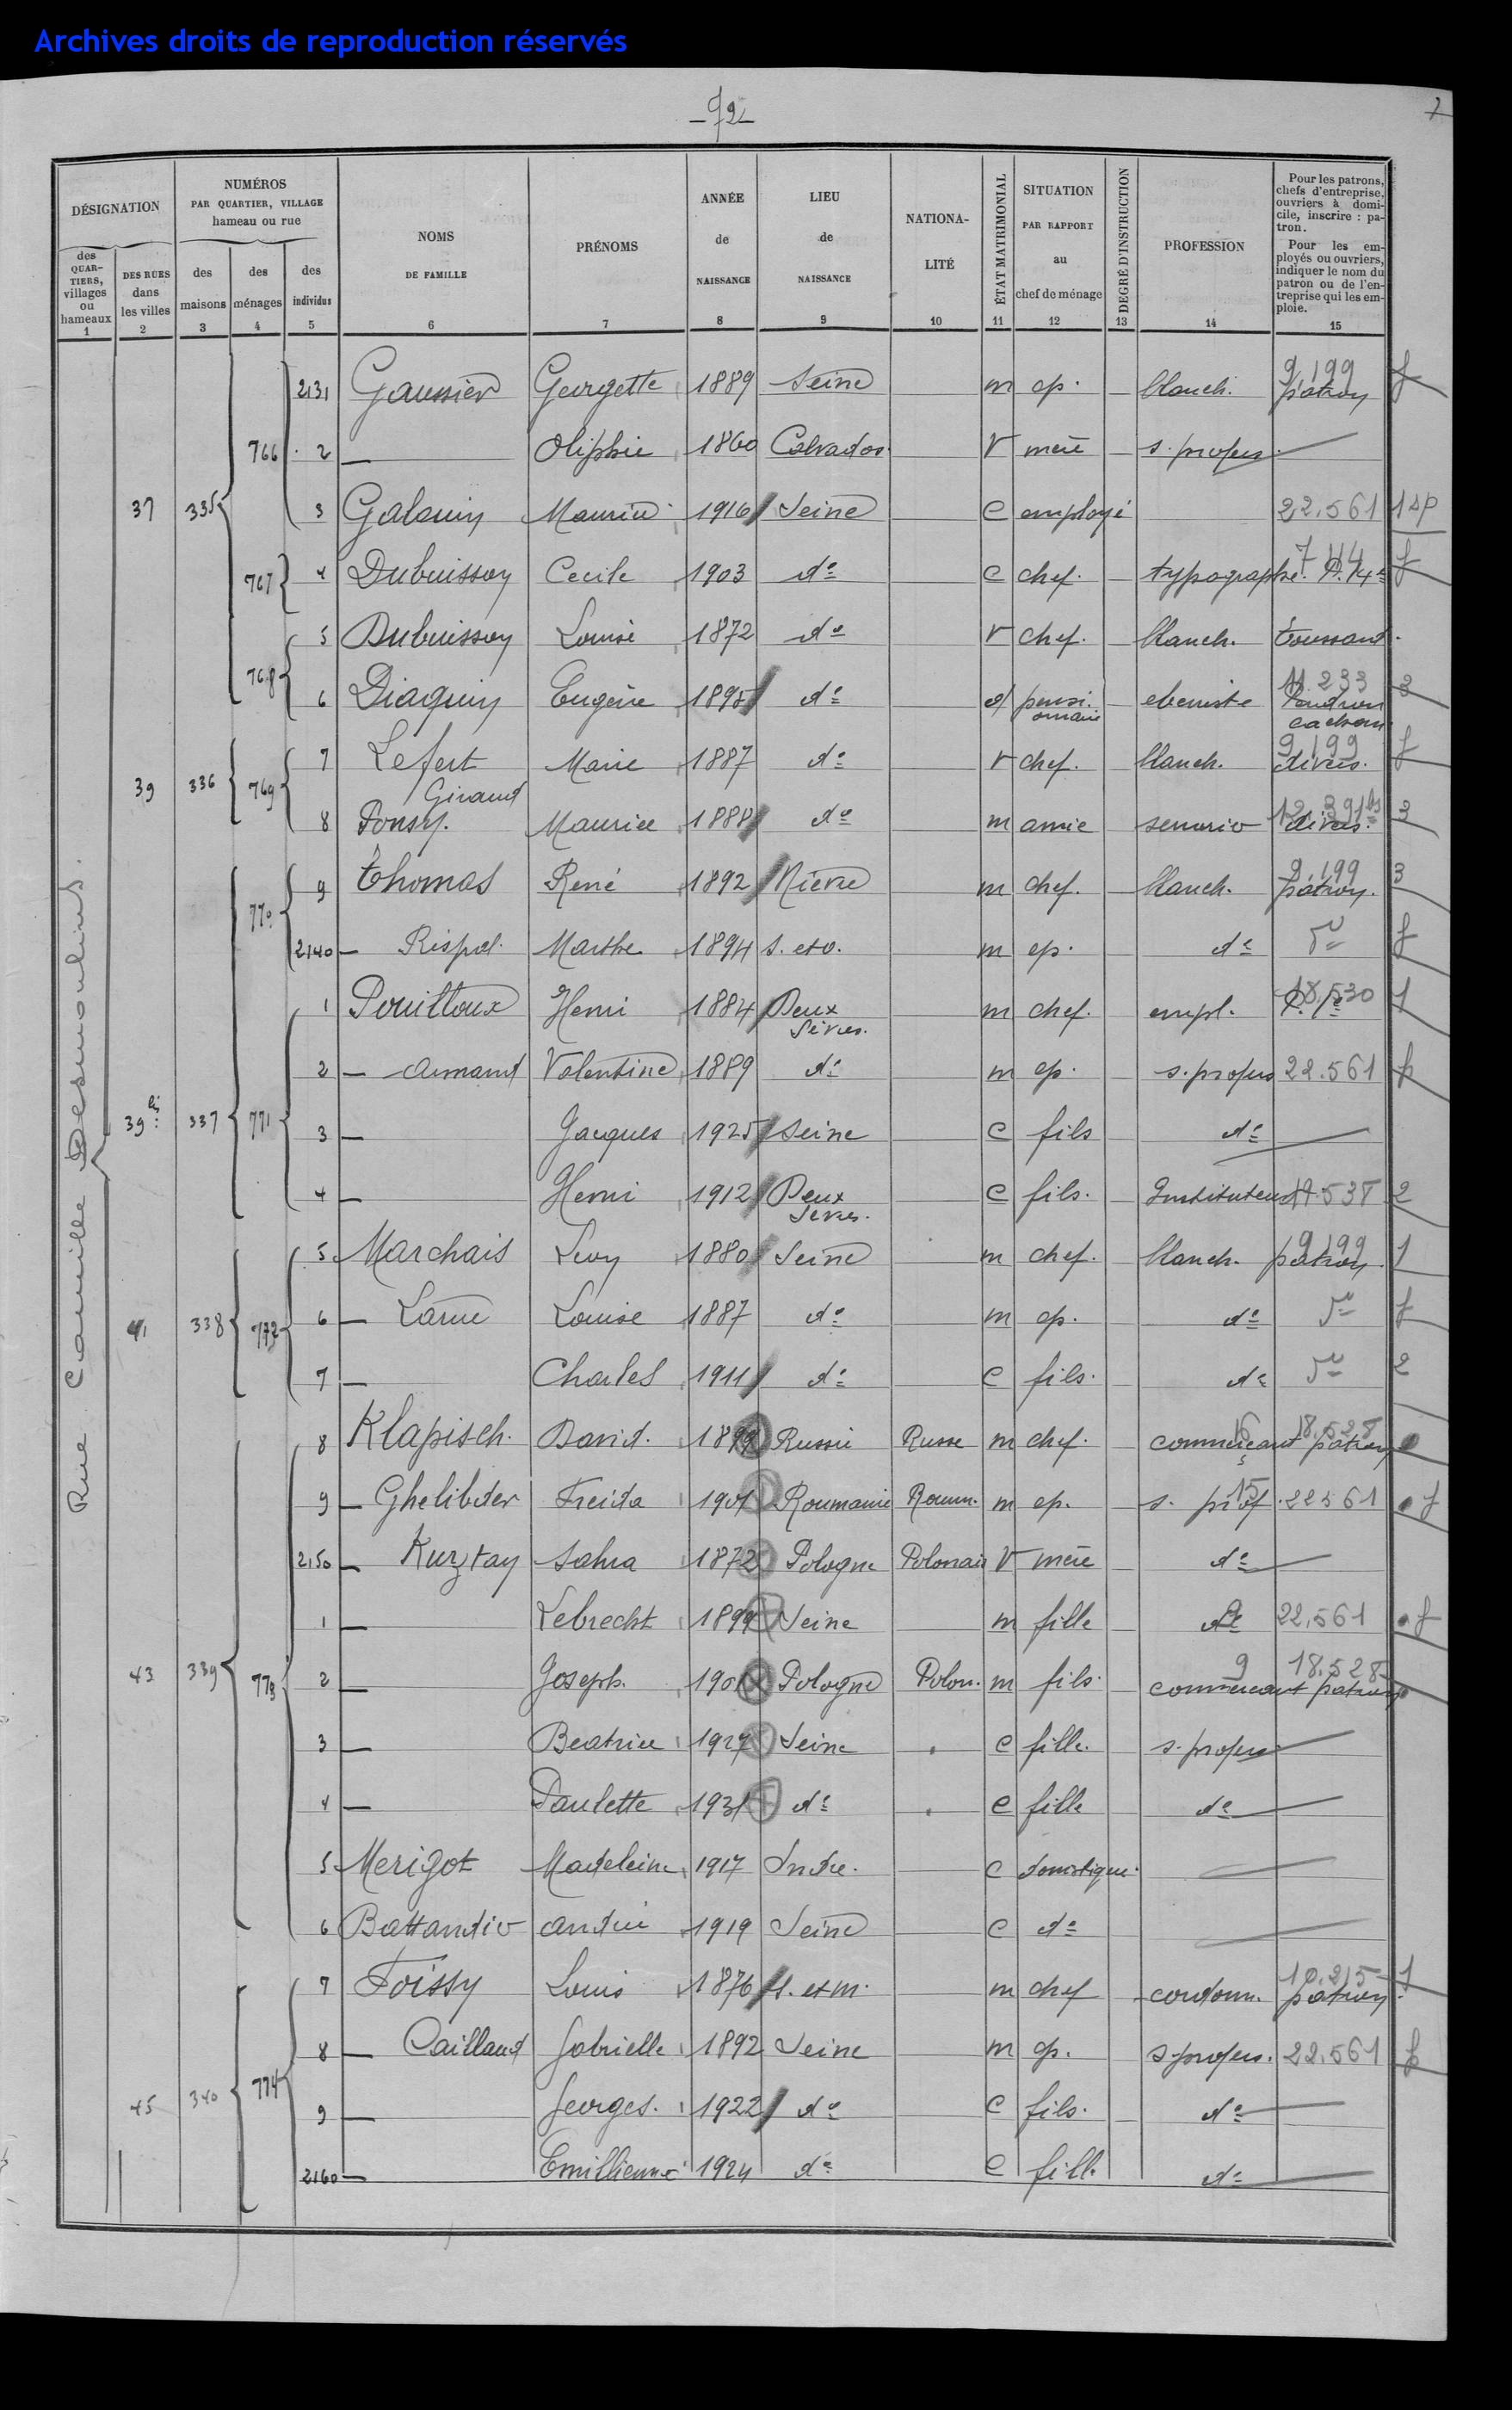 Archives droits de reproduction réservés
DÉSIGNATION
NUMÉROS
PAR QUARTIER, VILLAGE
hameau ou rue
NOMS
DE FAMILLE
PRÉNOMS
ANNÉE
de
NAISSANCE
LIEU
de
NAISSANCE
NATIONA-
LITÉ
ÉTAT MATRIMONIAL
SITUATION
PAR RAPPORT
au
chef de ménage
DEGRÉ D'INSTRUCTION
PROFESSION
Pour les patrons,
chefs d'entreprise,
ouvriers à domi-
cile, inscrire : pa-
tron.
Pour les em-
ployés ou ouvriers,
indiquer le nom du
patron ou de l'en-
treprise qui les em-
ploie.
des
QUAR-
TIERS,
villages
ou
hameaux
DES RUES
dans
les villes
des
maisons
des
ménages
des
individus
1 2 3 4 5 6 7 8 9 10 11 12 13 14 15
Rue Camille Desmoulins
9.199
2131 Georgette 1889 Seine m ep. blanch. patron f
766 2 — 1860 Calvados V mère s. profess.
37 335 3 Maurice 1916 Seine C employé 22.561 1 sp
744
767 4 Dubuisson Cecile 1903 do C chef. typographe f
5 Dubuisson Louise 1872 do V chef. blanch. Toussaint.
11.233
768 6 Diaguin Eugène 1895 do d pensi- ebeniste 3
onnaire
9.199
7 Lefert Marie 1887 do V chef. blanch. divers. f
39 336 769 Giraud
8 Ponsy. Maurice 1888 do m amie divers. 3
9.199
9 Thomas René 1892 Nièvre m chef. blanch. patron. 3
770
2140 — Rispal. Marthe 1894 S. et O. m ep. do f
18.530
1 Pouilloux Henri 1884 Deux m chef. empl. 1
Sèvres.
2 — Armand Valentine 1889 do m ep. s. profess 22.561 f
39 bis 337 771 3 — Jacques 1925 Seine C fils do
4 — Henri 1912 Deux C fils. Instituteur 2
Sèvres.
9.199
5 Marchais Léon 1880 Seine m chef. blanch. patron. 1
41 338 772 6 — Louise 1887 do m ep. do f
7 — Charles 1911 do C fils. do 2
16 18.528
8 Klapisch. David. 1899 Russie Russe m chef. commerçant patron
15
9 — Ghelibter Freida 1901 Roumanie Roum. m ep. s. prof. 22561 f
2150 — Sahra 1872 Pologne Polonais V mère do
1 — Lebrecht 1899 Seine m fille do 22.561 f
9 18.528
43 339 773 2 — Joseph. 1901 Pologne Polon. m fils. commerçant patron
3 — Beatrice 1927 Seine C fille. s. profess
4 — Paulette 1931 do C fille do
5 Merigot Madeleine 1917 Indre. C domestique.
6 1919 Seine C do
10.215
7 Foissy Louis 1876 S. et M. m chef cordonn. patron. 1
8 — Caillaud Gabrielle 1892 Seine m ep. s. profess. 22.561 f
45 340 774 9 — Georges. 1922 do C fils. do
2160 — Emillienne 1924 do C fille do